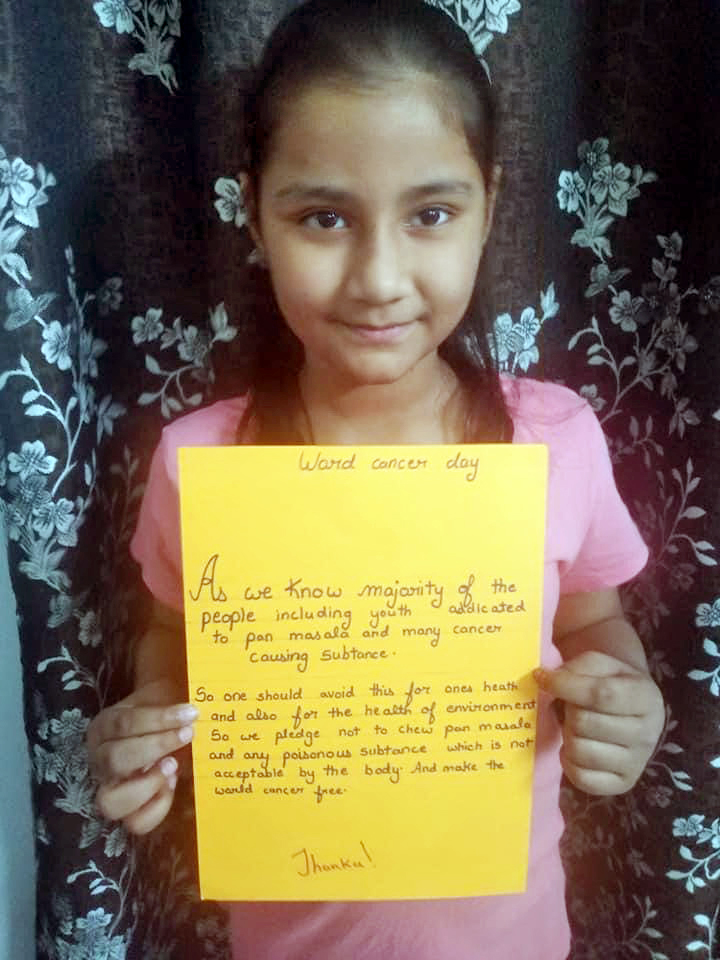 Ward cancer day
As we know majority of the
people including youth addicated
to pan masala and many cancer
causing Subtance.
So one should avoid this for ones heath
and also for the health of environment
So we pledge not to chew pan masala
and any poisonous subtance which is not
acceptable by the body. And make the
world cancer free.
Thanku!